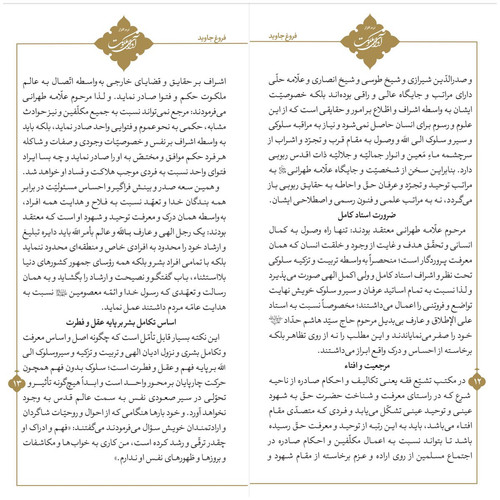 فروغ جاوید
و صدرالدّین شیرازی و شیخ طوسی و شیخ انصاری و علّامه حلّی
دارای مراتب و جایگاه عالی و راقی بوده‌اند بلکه خصوصیّت
ایشان به واسطه اشراف و اطّلاع بر امور و حقایقی است که از این
علوم و رسوم برای انسان حاصل نمی‌شود و نیاز به مراقبه سلوکی
و سیر و سلوک الی الله و وصول به مقام قرب و تجرّد و اشراب از
سرچشمه ماءِ معین و انوار جمالیّه و جلالیّه ذات اقدس ربوبی
دارد. بنابراین سخن از شخصیّت و جایگاه علّامه طهرانی به
مراتب توحید و تجرّد و عرفان حق و احاطه به حقایق ربوبی باز
می‌گردد، نه به مراتب علمی و فنون رسمی و اصطلاحی ایشان.
ضرورت استاد کامل
مرحوم علّامه طهرانی معتقد بودند: تنها راه وصول به کمال
انسانی و تحقّق هدف و غایت از وجود و خلقت انسان که همان
معرفت پروردگار است؛ منحصراً به واسطه تربیت و تزکیه سلوکی
تحت نظر و اشراف استاد کامل و ولی اکمل الهی صورت می‌پذیرد
و لذا نسبت به تمام اساتید عرفان و سیر و سلوک خویش نهایت
تواضع و فروتنی را اعمال می‌داشتند؛ مخصوصاً نسبت به استاد
علی الإطلاق و عارف بی‌بدیل مرحوم حاج سیّد هاشم حدّاد
خود را صفر می‌نمایاندند و این مطلب را نه از روی تظاهر بلکه
برخاسته از احساس و درک واقع ابراز می‌داشتند.
مرجعیت و افتاء
در مکتب تشیّع فقه یعنی تکالیف و احکام صادره از ناحیه
شرع که در راستای معرفت و شناخت حضرت حق به شهود
عینی و توحید عینی تشکّل می‌یابد و فردی که متصدّی مقام
افتاء می‌باشد، باید به این رتبه از توحید و معرفت رسیده
باشد تا بتواند نسبت به اعمال مکلّفین و احکام صادره در
اجتماع مسلمین از روی اراده و عزم برخاسته از مقام شهود و
۱۲
فروغ جاوید
اشراف بر حقایق و قضایای خارجی به واسطه اتّصال به عالم
ملکوت حکم و فتوا صادر نماید. و لذا مرحوم علّامه طهرانی
می‌فرمودند: مرجع نمی‌تواند نسبت به جمیع مکلّفین و نیز حوادث
مشابه، حکمی به نحو عموم و فتوایی واحد صادر نماید، بلکه باید
به واسطه اشراف بر نفس و خصوصیّات وجودی و صفات و شاکله
هر فرد حکم موافق و مختصّ به او را صادر نماید و چه بسا ایراد
فتوای واحد نسبت به فردی موجب هلاکت و فساد او خواهد شد.
و همین سعه صدر و بینش فراگیر و احساس مسئولیّت در برابر
همه بندگان خدا و تعهّد نسبت به فلاح و هدایت همه افراد،
به واسطه همان درک و معرفت توحید و شهود او است که معتقد
بودند: یک رجل الهی و عارف بالله و عالم بأمر الله باید دایره تبلیغ
و ارشاد خود را محدود به افرادی خاص و منطقه‌ای محدود ننماید
بلکه با تمامی افراد بشر و بلکه همه رؤسای جمهور کشورهای دنیا
بلااستثناء، باب گفتگو و نصیحت و ارشاد را بگشاید و به همان
رسالت و تعهّدی که رسول خدا و ائمّه معصومین نسبت به
هدایت عامّه مردم داشتند عمل نماید.
اساس تکامل بشر بر پایه عقل و فطرت
این نکته بسیار قابل تأمّل است که چگونه اصل و اساس معرفت
و تکامل بشری و نزول ادیان الهی و تربیت و تزکیه و سیر و سلوک الی
الله بر پایه فهم و عقل و فطرت است؛ سلوک بدون فهم همچون
حرکت چارپایان بر محور واحد است و ابداً هیچ‌گونه تأثیر و
تحوّلی در سیر صعودی نفس به سمت عالم قدس به وجود
نخواهد آورد. و خود بارها هنگامی که از احوال و روحیّات شاگردان
و ارادتمندان خویش سؤال می‌فرمودند می‌گفتند: «فهم و ادراک او
چقدر ترقّی و رشد کرده است، من کاری به خواب‌ها و مکاشفات
و بروزها و ظهورهای نفس او ندارم.»
۱۳